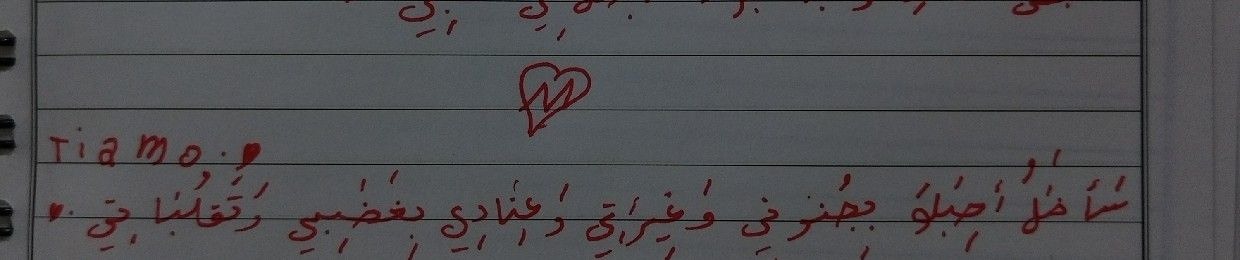 Tiamo.
سَأَظَلُّ أُحِبُّكَ بِجُنُونِي وَغِيرَتِي وَعِنَادِي بِغَضَبِي وَتَقَلُّبَاتِي.